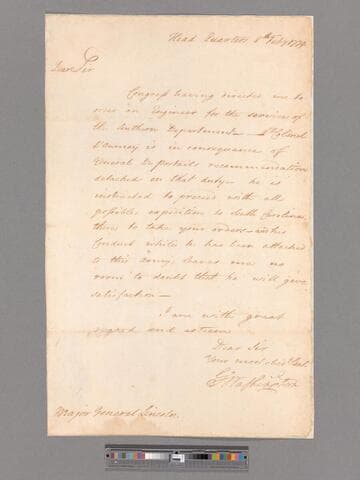 Head Quarters 8th Feby 1779.
Dear Sir
Congress having directed me to
order an Engineer for the services of
the Southern Department — Lt Colonel
Launoy is in consequence of
General Duportails recommendation
detached on that duty — he is
instructed to proceed with all
possible expedition to South Carolina,
there to take your orders — and his
Conduct while he has been attached
to this army, leaves me no
room to doubt that he will give
satisfaction —
I am with great
regard and esteem
Dear Sir
Your most obed Servt
G Washington
Major General Lincoln.